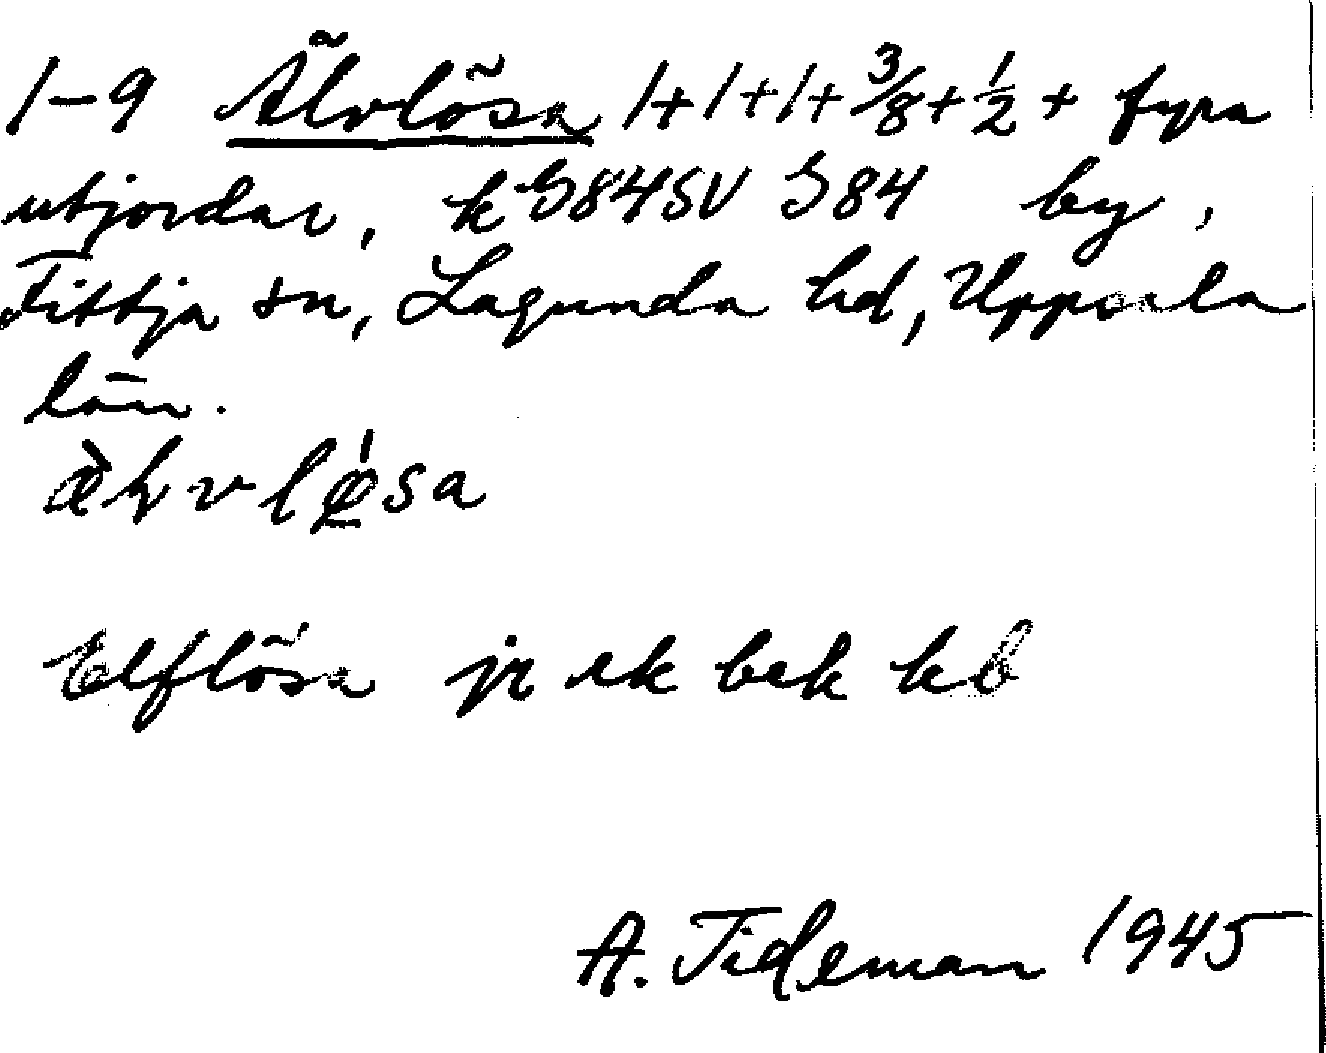 1-9 Älvlösa 1+1+1+3/8+1/2+ fyra
utjordar, k G84SV G84 by,
Fittja sn, Lagunda hd, Uppsala
län.
Elflösa jr ek bek kb
A. Tideman 1945